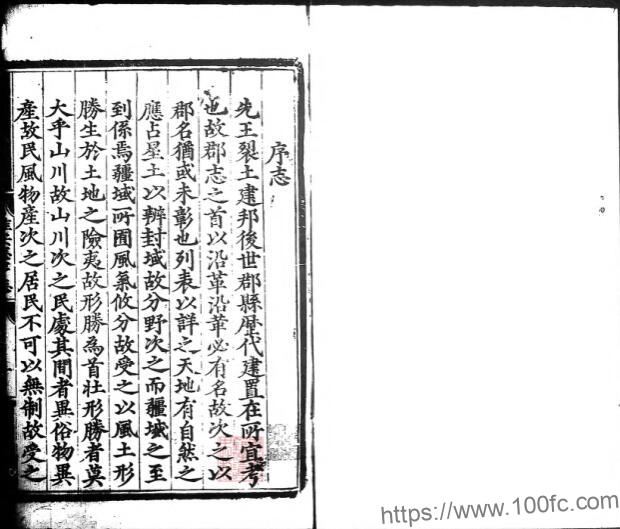 序志
先王裂土建邦後世郡縣歷代建置在所宜考
也故郡志之首以沿革沿革必有名故次之以
郡名猶或未彰也列表以詳之天地有自然之
應占星土以辨封域故分野次之而疆域之至
到係焉疆域所囿風氣攸分故受之以風土形
勝生於土地之險夷故形勝為首壮形勝者莫
大乎山川故山川次之民處其間者異俗物異
產故民風物產次之居民不可以無制故受之
https://www.100fc.com